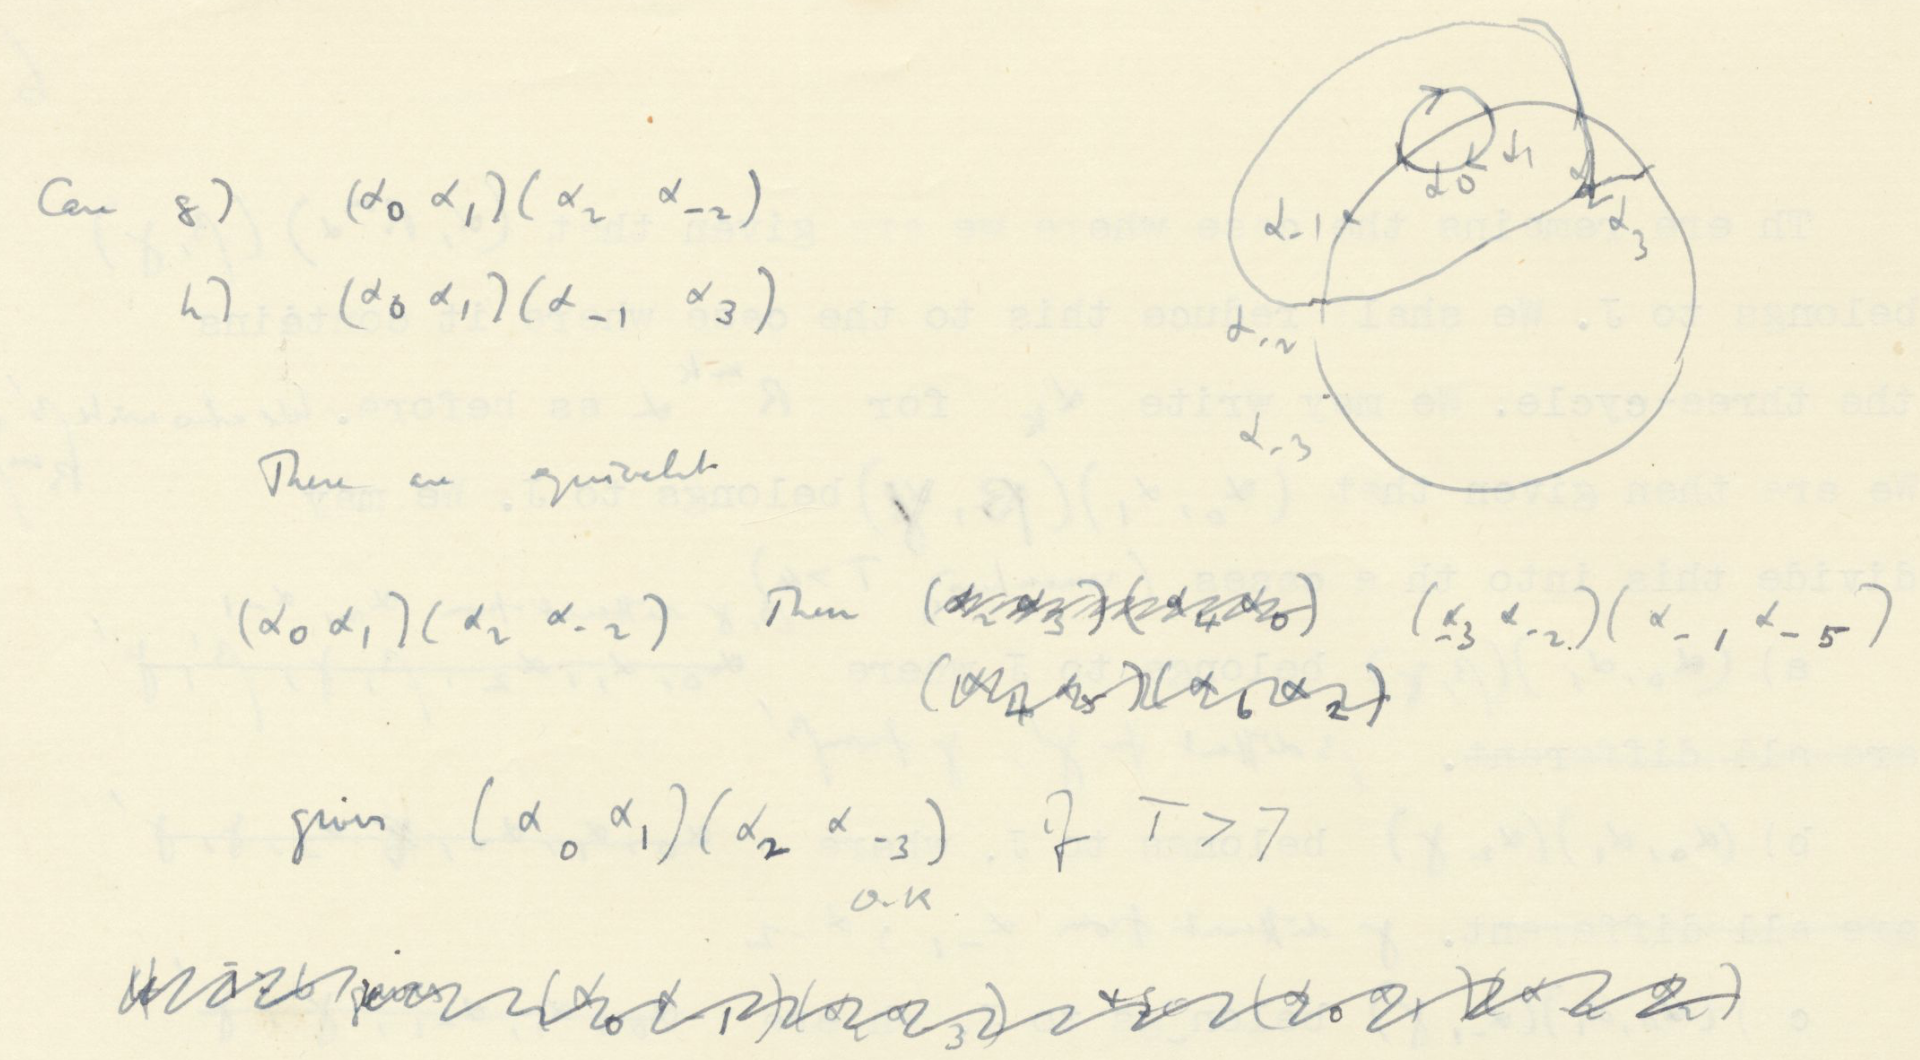 Case g) (α₀ α₁)(α₂ α₋₂)
h) (α₀ α₁)(α₋₁ α₃)
α₁
α₀
α₂
α₋₁
α₃
α₋₂
α₋₃
These are equivalent
(α₀ α₁)(α₂ α₋₂) Then (α₂ α₃)(α₄ α₀) (α₋₃ α₋₂)(α₋₁ α₋₅)
(α₄ α₅)(α₆ α₂)
gives (α₀ α₁)(α₂ α₋₃) if T > 7
o.k.